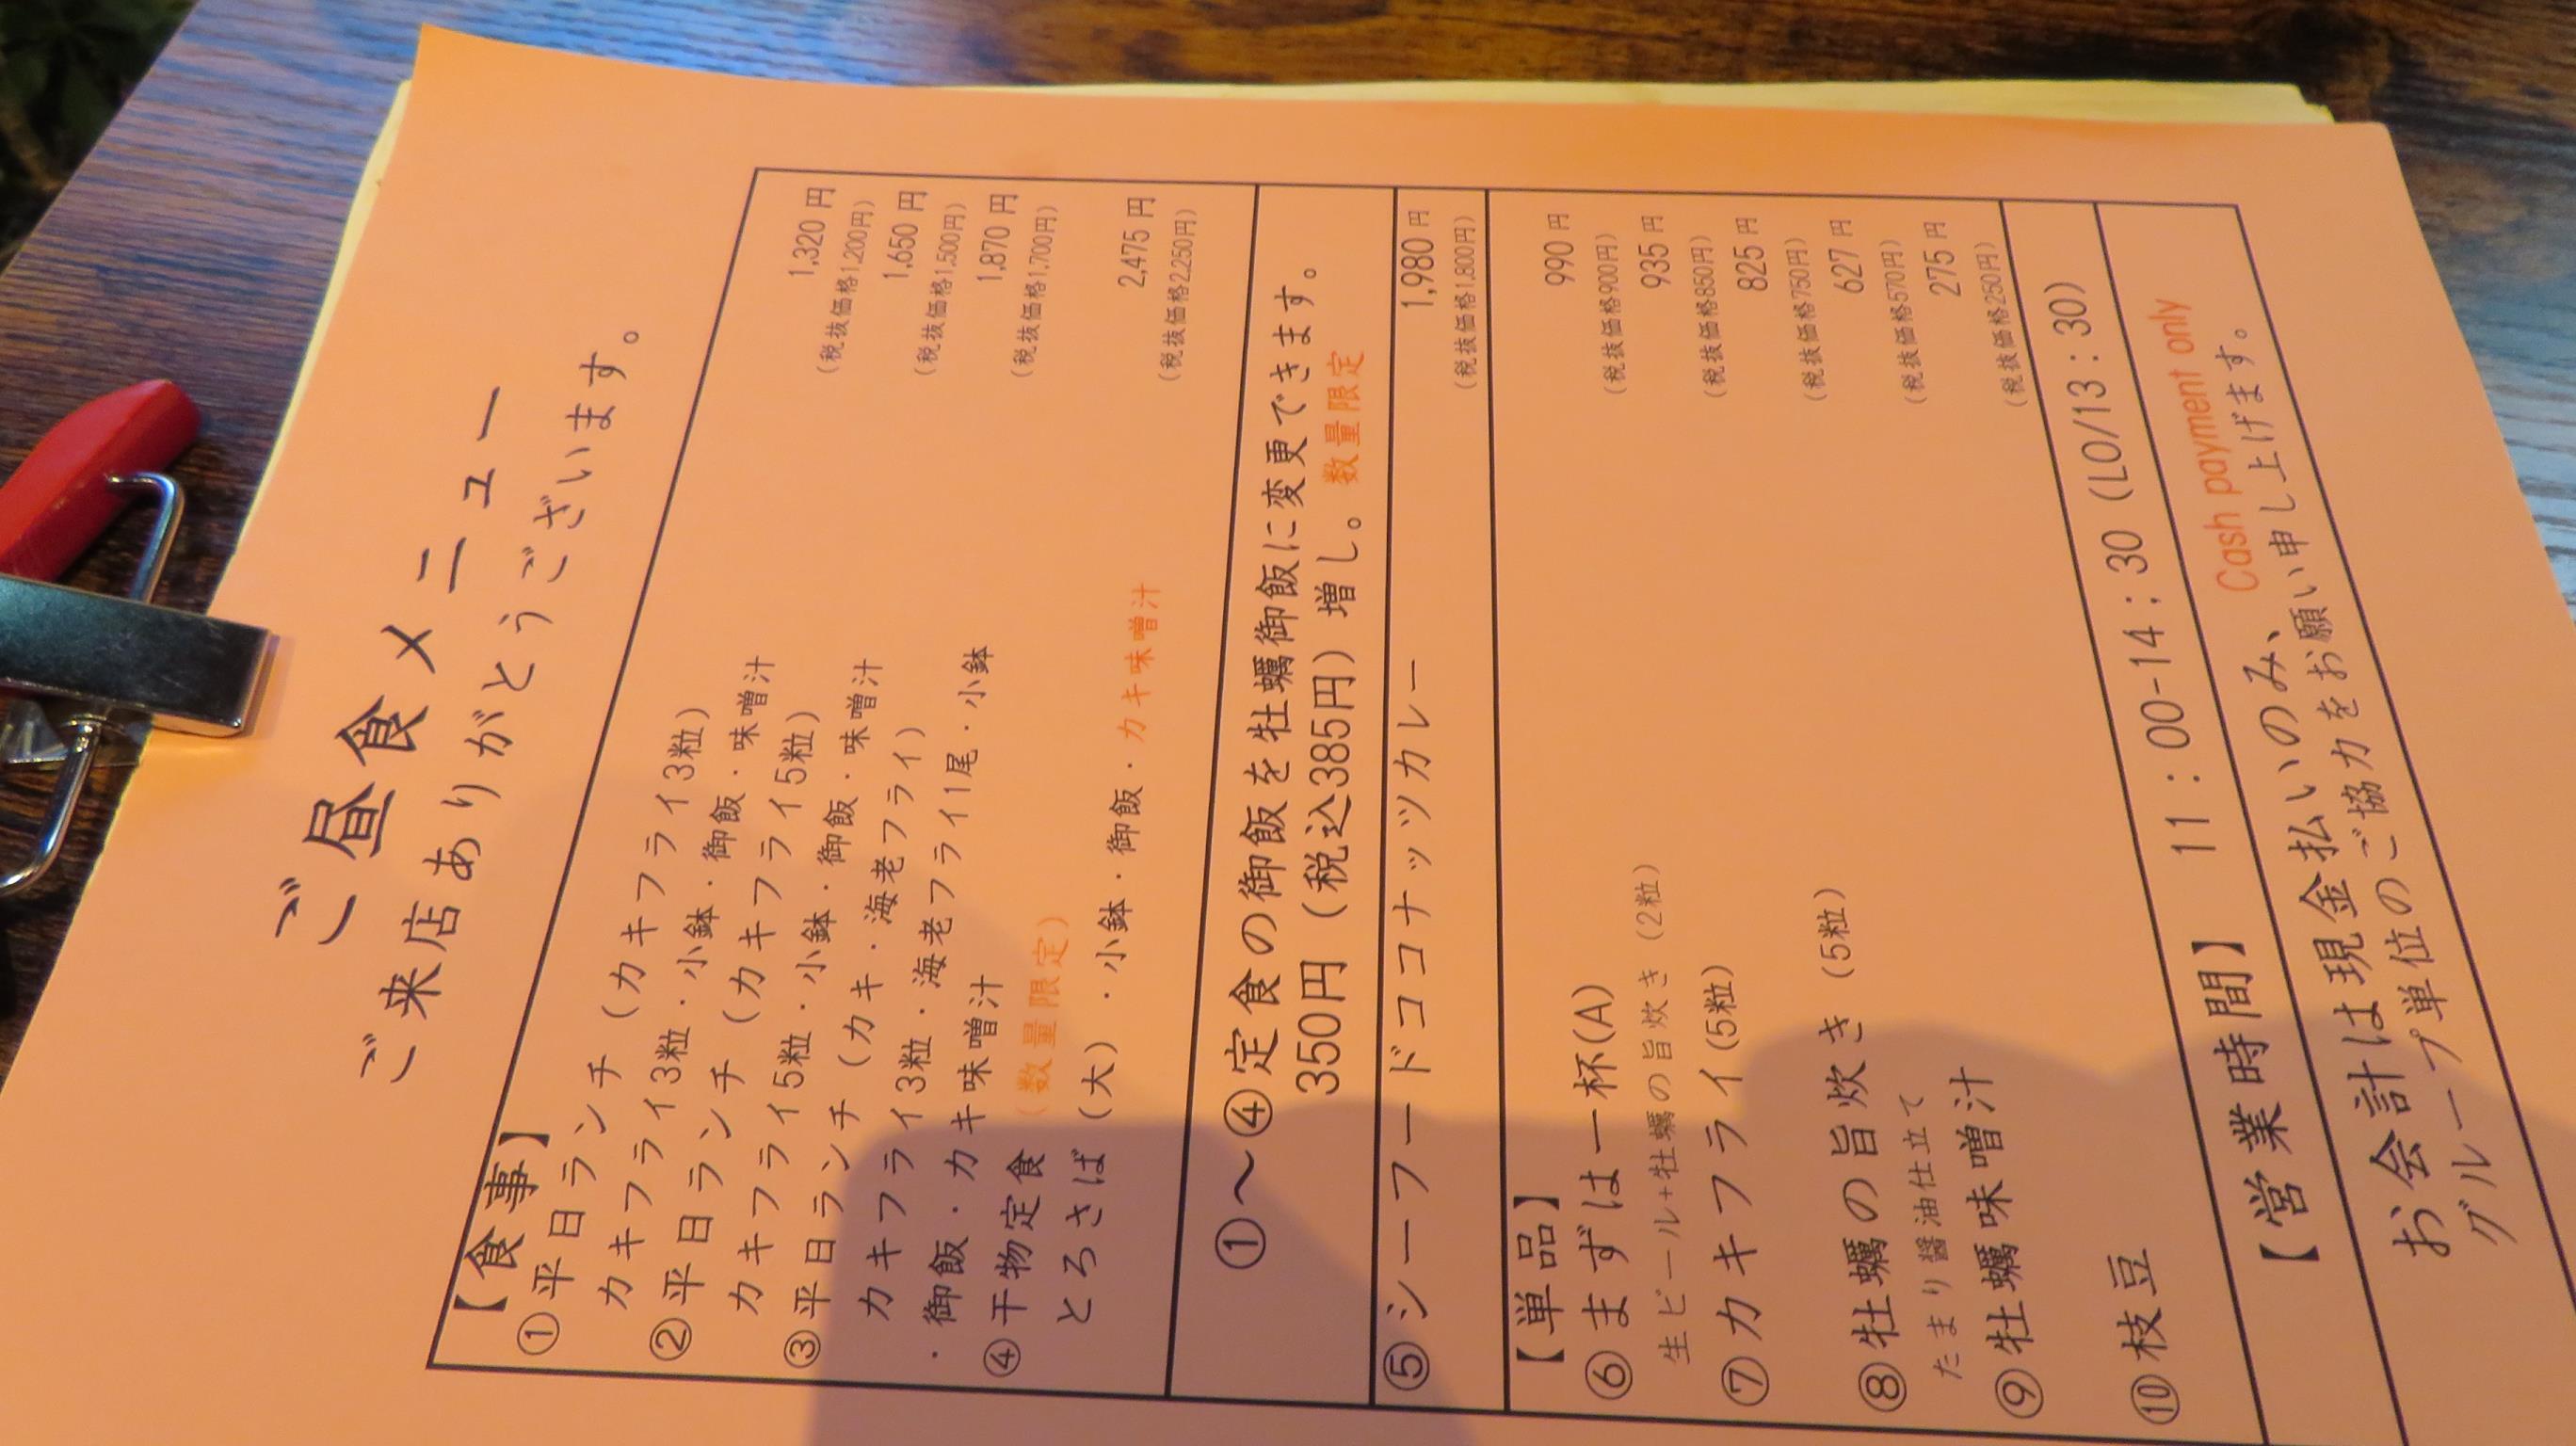 ご昼食メニュー
ご来店ありがとうございます。
【食事】
①平日ランチ（カキフライ3粒） 1,320円
カキフライ3粒・小鉢・御飯・味噌汁 （税抜価格1,200円）
②平日ランチ（カキフライ5粒） 1,650円
カキフライ5粒・小鉢・御飯・味噌汁 （税抜価格1,500円）
③平日ランチ（カキ・海老フライ） 1,870円
カキフライ3粒・海老フライ1尾・小鉢 （税抜価格1,700円）
・御飯・カキ味噌汁
④干物定食（数量限定） 2,475円
とろさば（大）・小鉢・御飯・カキ味噌汁 （税抜価格2,250円）
①～④定食の御飯を牡蠣御飯に変更できます。
350円（税込385円）増し。数量限定
⑤シーフードココナッツカレー 1,980円
（税抜価格1,800円）
【単品】
⑥まずは一杯(A) 990円
生ビール+牡蠣の旨炊き（2粒） （税抜価格900円）
⑦カキフライ(5粒) 935円
（税抜価格850円）
⑧牡蠣の旨炊き（5粒） 825円
たまり醤油仕立て （税抜価格750円）
⑨牡蠣味噌汁 627円
（税抜価格570円）
⑩枝豆 275円
（税抜価格250円）
【営業時間】 11：00-14：30（LO/13：30）
お会計は現金払いのみ、Cash payment only
グループ単位のご協力をお願い申し上げます。